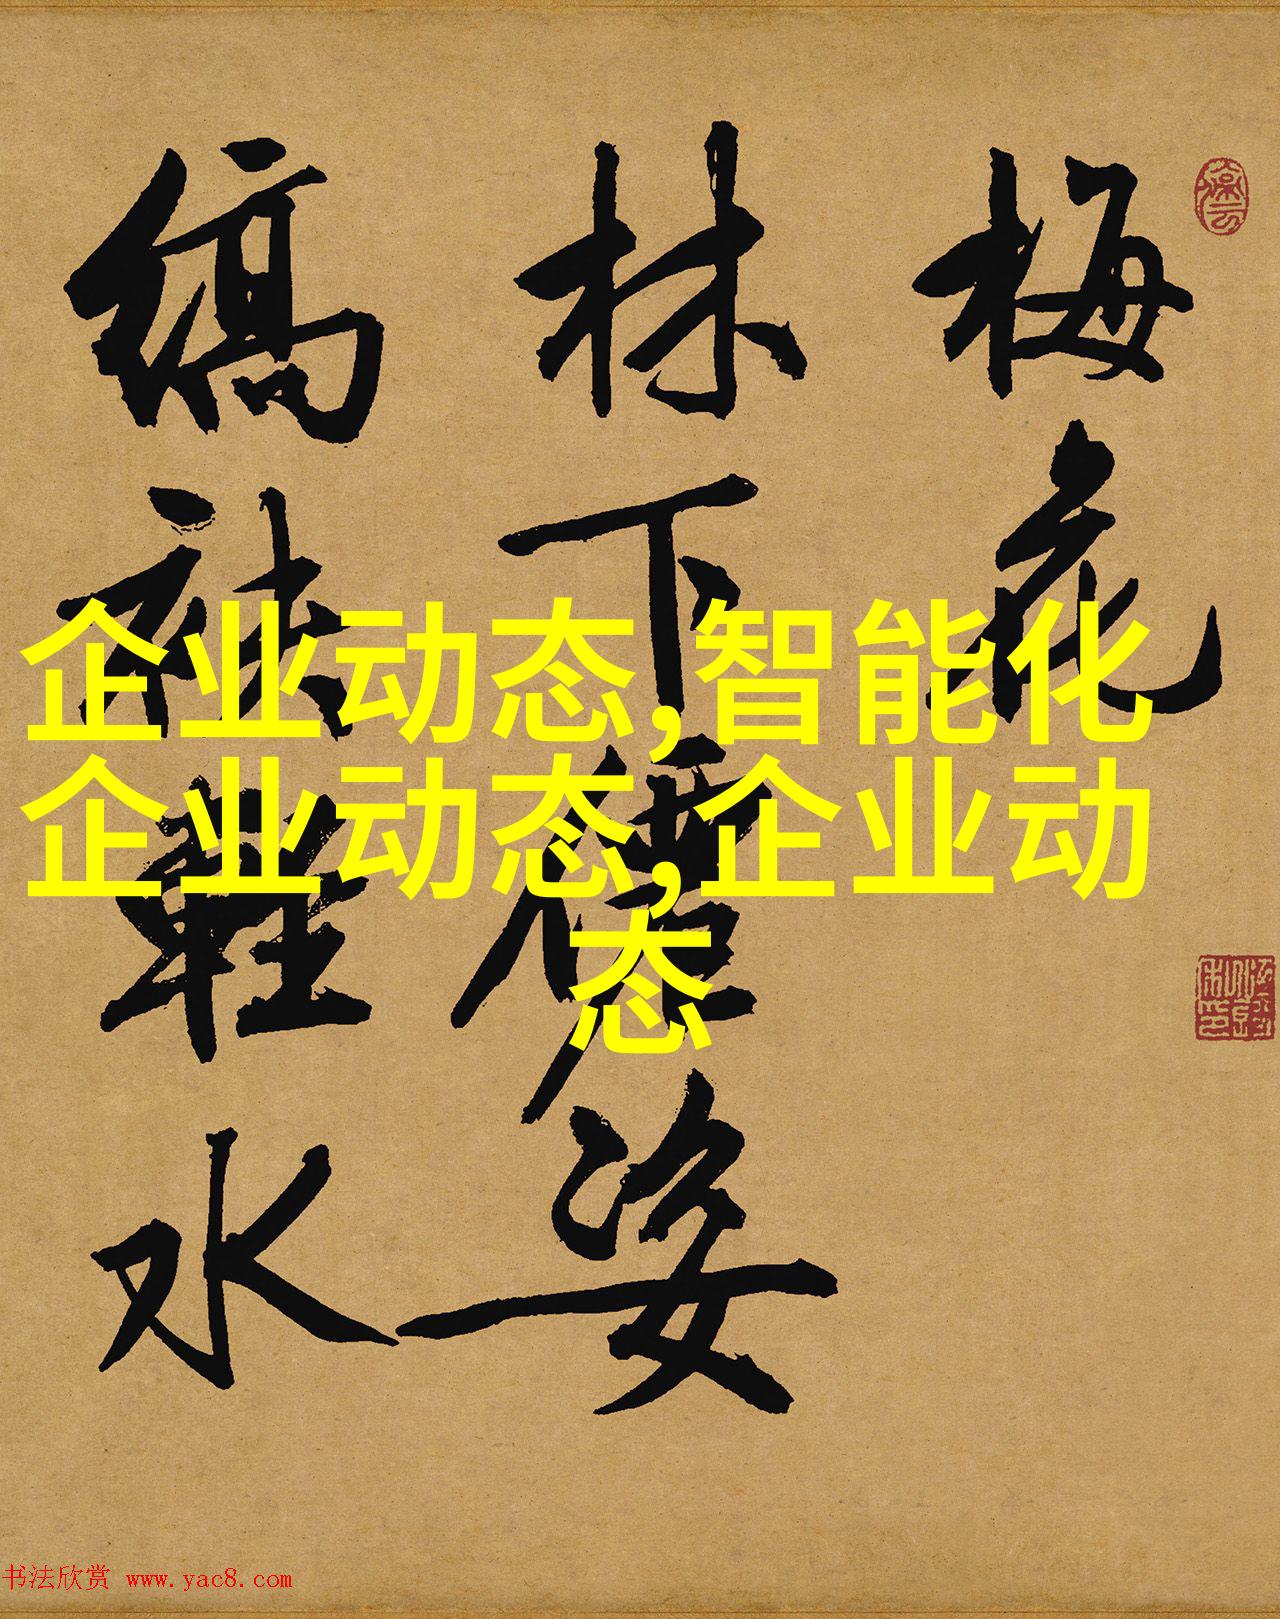 梅花
林下仙姿
缟袂轻水
企业动态,智能化
企业动态,企业动
态
书法欣赏 www.yac8.com